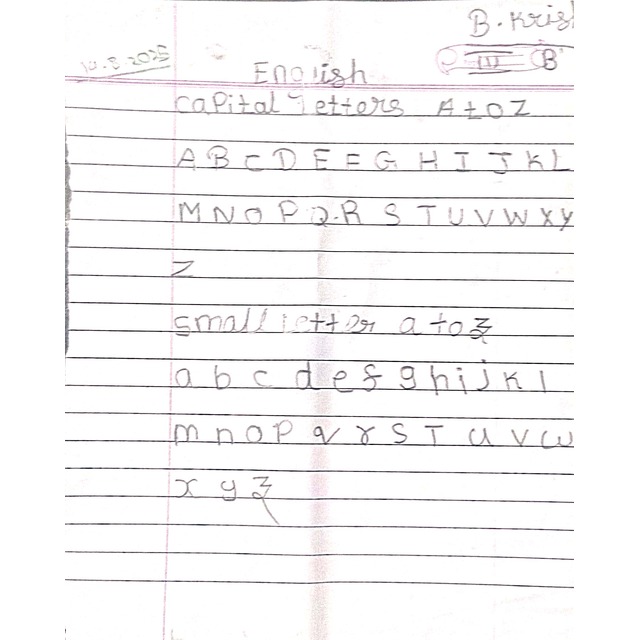 B. Krish
III B
14.8.2025
English
Capital letters A to Z
A B C D E F G H I J K L
M N O P Q R S T U V W X Y
Z
Small letter a to z
a b c d e f g h i j k l
m n o p q r s T u v w
x y z